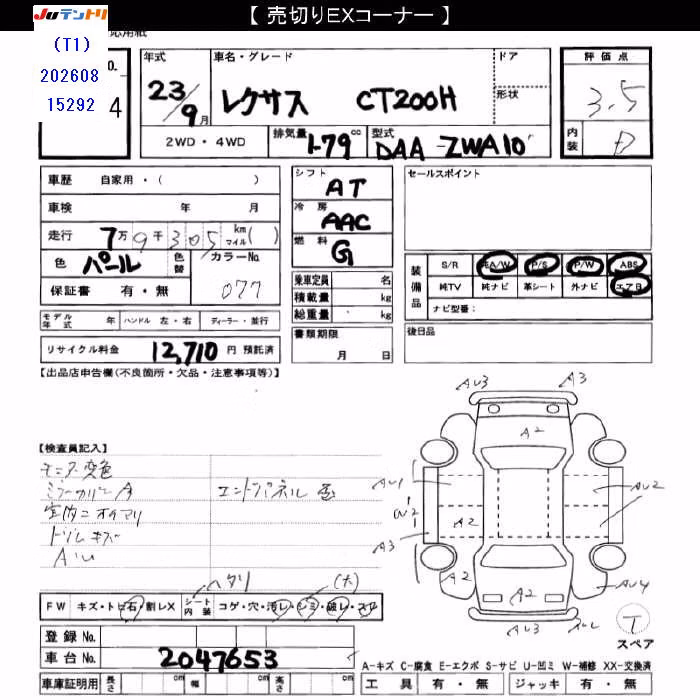 【 売切りEXコーナー 】
JUテントリ
応用紙
(T1)
202608
15292
o.
4
年式
23/9月
車名・グレード
レクサス CT200H
ドア
形状
評価点
3.5
内装
D
2WD・4WD
排気量
1.79cc
型式
DAA-ZWA10
車歴 自家用・( )
車検 年 月
走行 7万9千305 km マイル( )
色 パール 色替 カラーNo 077
保証書 有・無
シフト AT
冷房 AAC
燃料 G
乗車定員 名
積載量 kg
総重量 kg
セールスポイント
装備品
S/R 純A/W P/S P/W ABS
純TV 純ナビ 革シート 外ナビ エアB
ナビ型番:
モデル年式 年 ハンドル 左・右 ディーラー・並行
書類期限
月 日
後日品
リサイクル料金 12,710 円 預託済
【出品店申告欄(不良箇所・欠品・注意事項等)】
【検査員記入】
モニタ変色
ミラーカバーA
エンドパネル
室内ニオイ
トリムキズ
AU3
A3
A2
AU1
AU2
W2
A2
A3
A2
A2
AU4
AU3
T
スペア
ヘタリ
(大)
FW キズ・トビ石・割レX シート内装 コゲ・穴・汚レ・シミ・破レ・スレ
登録 No.
車台 No. 2047653
A-キズ C-腐食 E-エクボ S-サビ U-凹ミ W-補修 XX-交換済
車庫証明用 長さ cm 幅 cm 高さ cm
工具 有・無 ジャッキ 有・無